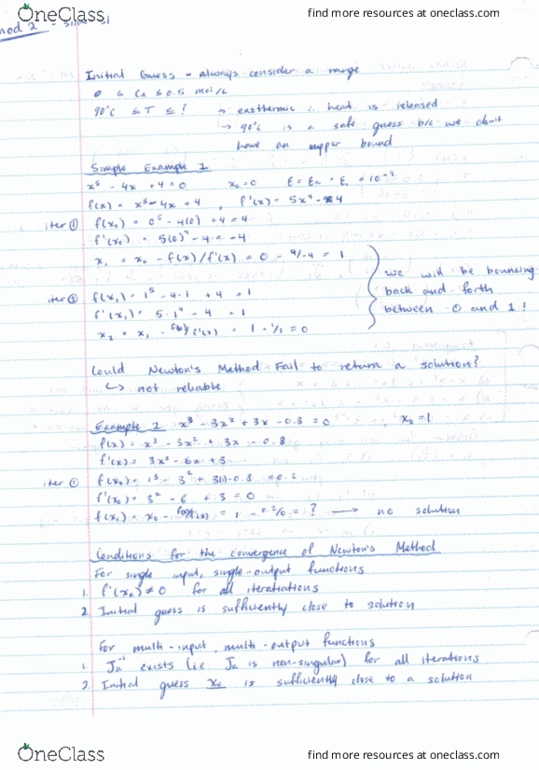 OneClass
find more resources at oneclass.com
mod 2 -
Initial Guess - always consider a range
0 ≤ Ca ≤ 0.5 mol/L
90°C ≤ T ≤ ! → exothermic ∴ heat is released
→ 90°C is a safe guess b/c we don't
have an upper bound
Simple Example 1
x⁵ - 4x + 4 = 0 x₀ = 0 = 10⁻³
f(x) = x⁵ - 4x + 4 , f'(x) = 5x⁴ - 4
iter ① f(x₀) = 0⁵ - 4(0) + 4 = 4
f'(x₀) = 5(0)⁴ - 4 = -4
x₁ = x₀ - f(x)/f'(x) = 0 - 4/-4 = 1
we will be bouncing
iter ② f(x₁) = 1⁵ - 4·1 + 4 = 1
back and forth
f'(x₁) = 5·1⁴ - 4 = 1
between 0 and 1!
x₂ = x₁ - f(x)/f'(x) = 1 - 1/1 = 0
Could Newton's Method Fail to return a solution?
↳ not reliable
Example 2 x³ - 3x² + 3x - 0.8 = 0 , x₀ = 1
f(x) = x³ - 3x² + 3x - 0.8
f'(x) = 3x² - 6x + 3
iter ① f(x₀) = 1³ - 3² + 3(1) - 0.8 = 0.2
f'(x₀) = 3² - 6 + 3 = 0
f(x₁) = x₀ - f(x)/f'(x) = 1 - 0.2/0 = ? → no solution
Conditions for the convergence of Newton's Method
For single input, single-output functions
1. f'(x₀) ≠ 0 for all iterations
2. Initial guess is sufficiently close to solution
For multi-input, multi-output functions
1. exists (ie is non-singular) for all iterations
2. Initial guess x₀ is sufficiently close to a solution
OneClass
find more resources at oneclass.com